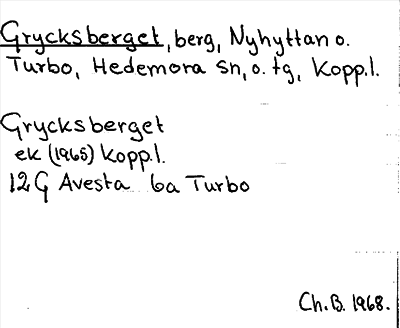 Grycksberget, berg, Nyhyttan o.
Turbo, Hedemora sn, o. tg, Kopp.l.
Grycksberget
ek (1965) Kopp.l.
12G Avesta 6a Turbo
Ch.B. 1968.